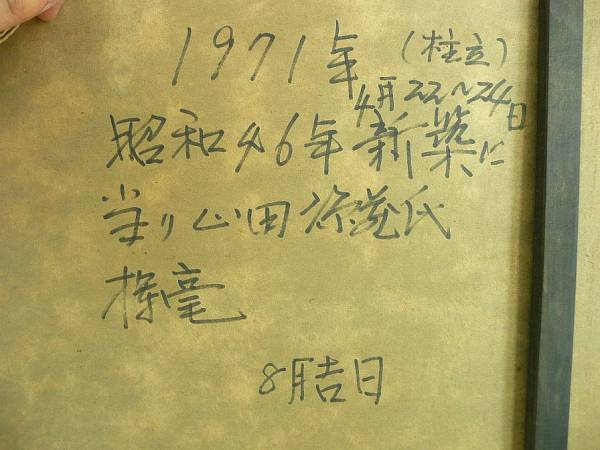 1971年 (柱立)
4月22~24日
昭和46年新築に
当り山田
氏
揮毫
8月吉日